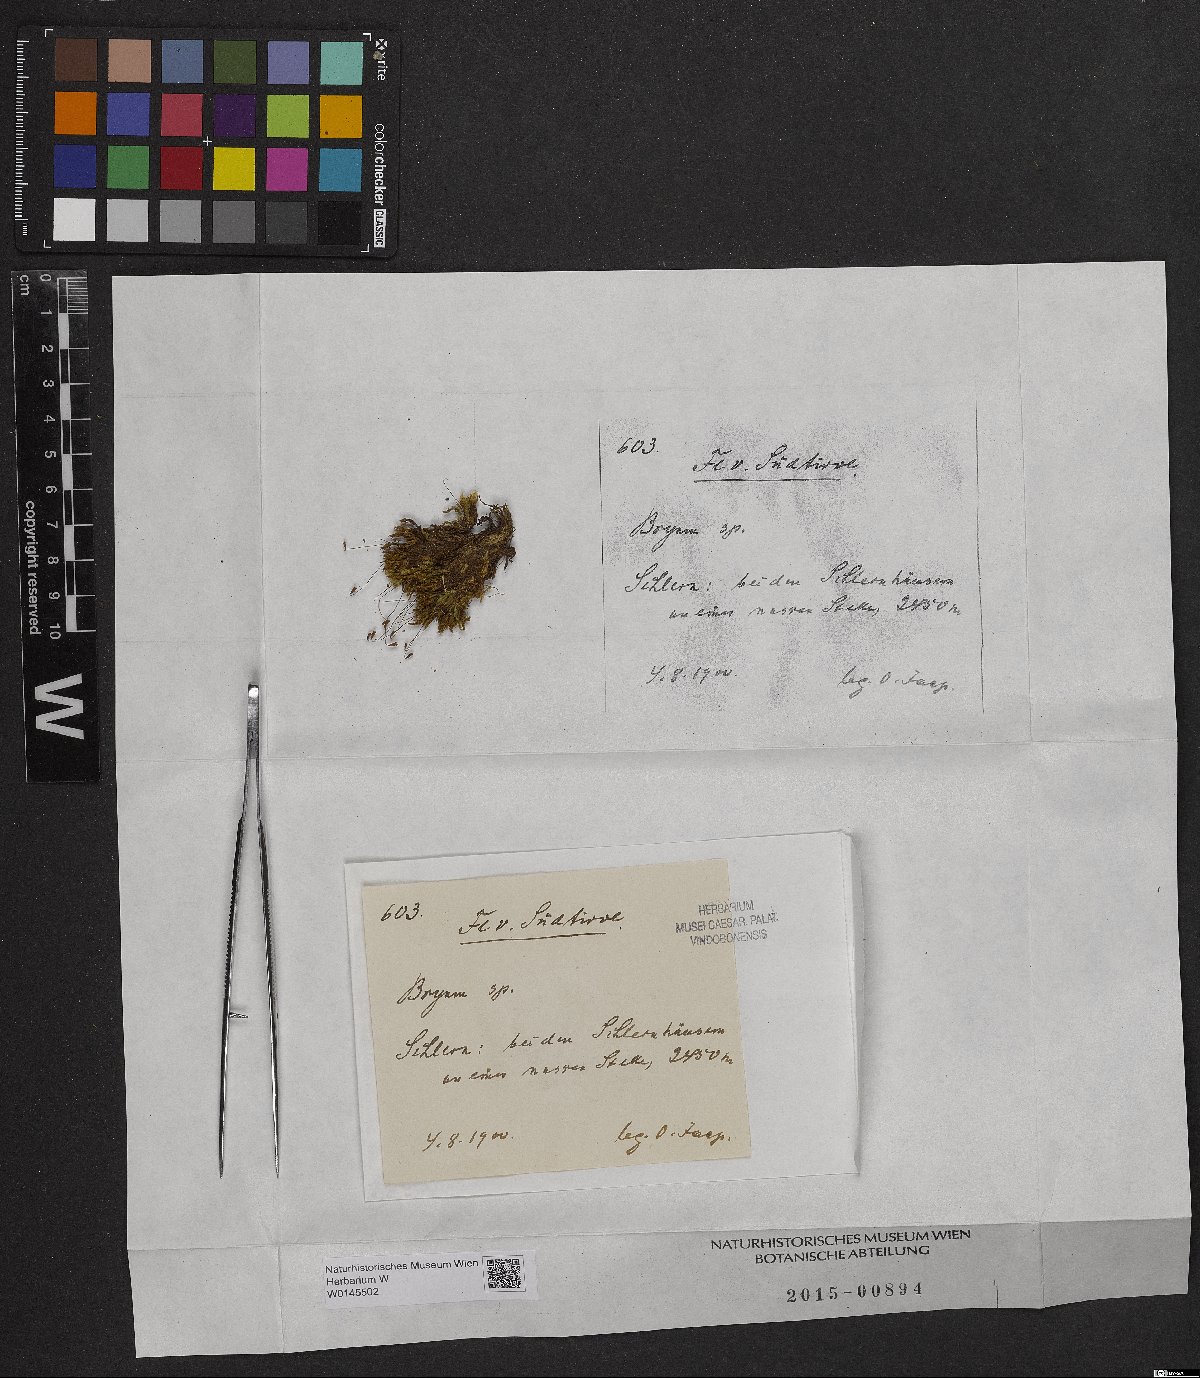 x-rite
colorchecker CLASSIC
0 1 2 3 4 5 6 7 8 9 10
cm
copyright reserved
W
603.
Fl. v. Südtirol.
Bryum sp.
Schlern: bei den Schlernhäusern
an einer nassen Stelle, 2450 m
4.8.1900.
leg. O. Jaap.
603.
Fl. v. Südtirol.
HERBARIUM
MUSEI CAESAR. PALAT.
VINDOBONENSIS
Bryum sp.
Schlern: bei den Schlernhäusern
an einer nassen Stelle, 2450 m
4.8.1900.
leg. O. Jaap.
Naturhistorisches Museum Wien
Herbarium W
W0145502
NATURHISTORISCHES MUSEUM WIEN
BOTANISCHE ABTEILUNG
2015-00894